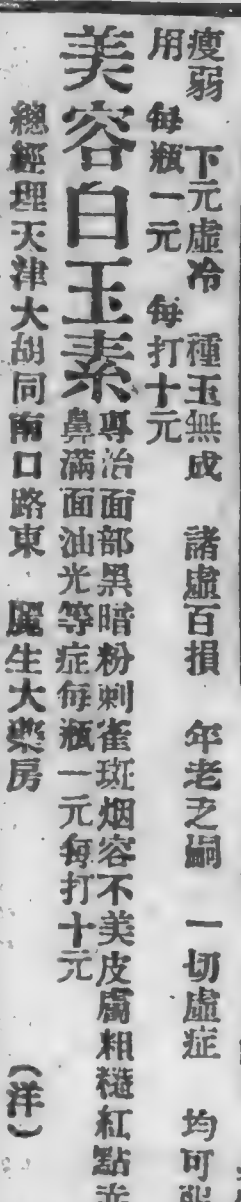 瘦弱 下元虛冷 種玉無成 諸虛百損 年老乏嗣 一切虛症 均可服
用 每瓶一元 每打十元
美容白玉素
專治面部黑暗粉刺雀斑烟容不美皮膚粗糙紅點
鼻滿面油光等症每瓶一元每打十元
總經理天津大胡同南口路東 麗生大藥房 (洋)